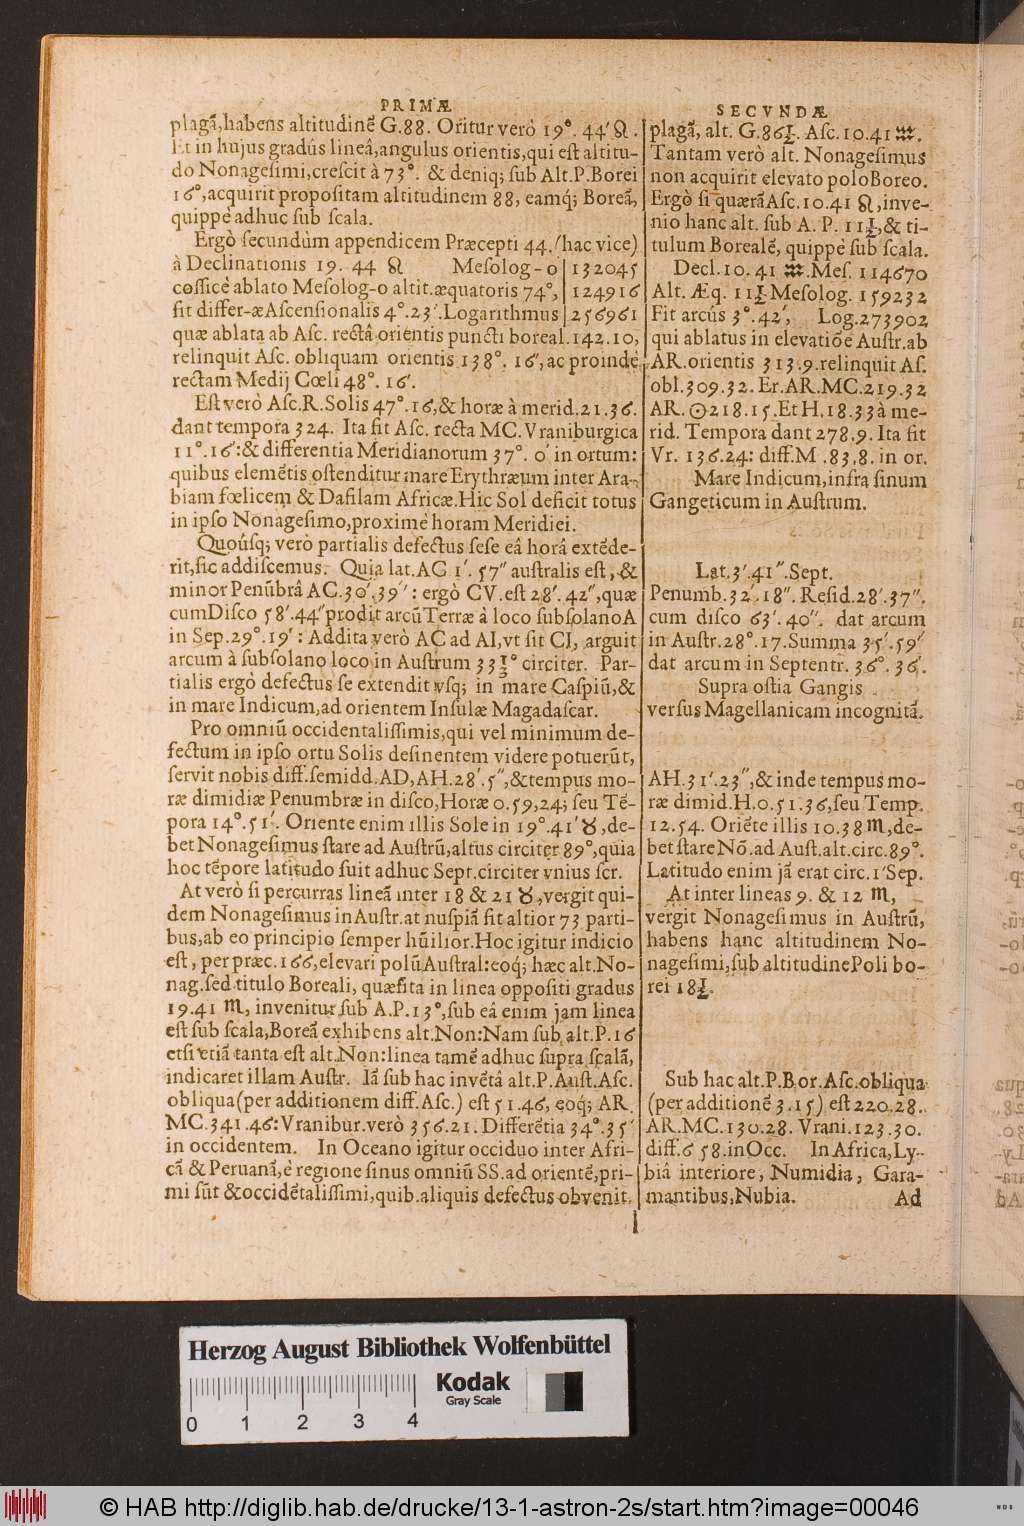 PRIMÆ
plagã, habens altitudinẽ G.88. Oritur verò 19°. 44′ ♌.
Et in hujus gradûs lineâ, angulus orientis, qui est altitu-
do Nonagesimi, crescit à 73°. & deniq; sub Alt. P. Borei
16°, acquirit propositam altitudinem 88, eamq; Boreã,
quippe adhuc sub scala.
Ergò secundùm appendicem Præcepti 44. (hac vice)
à Declinationis 19. 44 ♌ Mesolog-o | 132045
cossicè ablato Mesolog-o altit. æquatoris 74°, | 124916
fit differ-æ Ascensionalis 4°. 23′. Logarithmus | 256961
quæ ablata ab Asc. rectâ orientis puncti boreal. 142.10,
relinquit Asc. obliquam orientis 138°. 16′, ac proinde
rectam Medij Cœli 48°. 16′.
Est verò Asc. R. Solis 47°. 16, & horæ à merid. 21.36.
dant tempora 324. Ita fit Asc. recta MC. Vraniburgica
11°. 16′: & differentia Meridianorum 37°. 0′ in ortum:
quibus elemẽtis ostenditur mare Erythræum inter Ara-
biam fœlicem & Dasilam Africæ. Hic Sol deficit totus
in ipso Nonagesimo, proximè horam Meridiei.
Quoúsq; verò partialis defectus sese eâ horâ extẽde-
rit, sic addiscemus. Quia lat. AC 1′. 57″ australis est, &
minor Penũbrâ AC. 30′. 39″: ergò CV. est 28′. 42″, quæ
cum Disco 58′. 44″ prodit arcũ Terræ à loco subsolano A
in Sep. 29°. 19′: Addita verò AC ad AI, vt sit CI, arguit
arcum à subsolano loco in Austrum 33½° circiter. Par-
tialis ergò defectus se extendit vsq; in mare Caspiũ, &
in mare Indicum, ad orientem Insulæ Magadascar.
Pro omniũ occidentalissimis, qui vel minimum de-
fectum in ipso ortu Solis desinentem videre potuerũt,
servit nobis diff. semidd. AD, AH. 28′. 5″, & tempus mo-
ræ dimidiæ Penumbræ in disco, Horæ 0.59,24; seu Tẽ-
pora 14°. 51′. Oriente enim illis Sole in 19°. 41′ ♉, de-
bet Nonagesimus stare ad Austrũ, altus circiter 89°, quia
hoc tẽpore latitudo fuit adhuc Sept. circiter vnius scr.
At verò si percurras lineã inter 18 & 21 ♉, vergit qui-
dem Nonagesimus in Austr. at nuspiã fit altior 73 parti-
bus, ab eo principio semper hũilior. Hoc igitur indicio
est, per præc. 166, elevari polũ Austral: eoq; hæc alt. No-
nag. sed titulo Boreali, quæsita in linea oppositi gradus
19.41 ♏, invenitur sub A. P. 13°, sub eâ enim jam linea
est sub scala, Boreã exhibens alt. Non: Nam sub alt. P. 16
etsi etiã tanta est alt. Non: linea tamẽ adhuc supra scalã,
indicaret illam Austr. Iã sub hac invẽtâ alt. P. Aust. Asc.
obliqua (per additionem diff. Asc.) est 51.46, eoq; AR.
MC. 341.46: Vranibur. verò 356.21. Differẽtia 34°. 35′
in occidentem. In Oceano igitur occiduo inter Afri-
cã & Peruanã, è regione sinus omniũ SS. ad orientẽ, pri-
mi sũt & occidẽtalissimi, quib. aliquis defectus obvenit.
SECVNDÆ
plagã, alt. G. 86½. Asc. 10.41 ♒.
Tantam verò alt. Nonagesimus
non acquirit elevato polo Boreo.
Ergò si quærã Asc. 10.41 ♌, inve-
nio hanc alt. sub A. P. 11½, & ti-
tulum Borealẽ, quippe sub scala.
Decl. 10. 41 ♒. Mes. 114670
Alt. Æq. 11½ Mesolog. 159232
Fit arcús 3°. 42′, Log. 273902
qui ablatus in elevatiõe Austr. ab
AR. orientis 313.9. relinquit As.
obl. 309.32. Er. AR. MC. 219.32
AR. ☉ 218.15. Et H. 18.33 à me-
rid. Tempora dant 278.9. Ita fit
Vr. 136.24: diff. M. 83.8. in or.
Mare Indicum, infra sinum
Gangeticum in Austrum.
Lat. 3′. 41″. Sept.
Penumb. 32′. 18″. Resid. 28′. 37″.
cum disco 63′. 40″. dat arcum
in Austr. 28°. 17. Summa 35′. 59″
dat arcum in Septentr. 36°. 36′.
Supra ostia Gangis
versus Magellanicam incognitã.
AH. 31′. 23″, & inde tempus mo-
ræ dimid. H. 0.51.36, seu Temp.
12.54. Oriẽte illis 10.38 ♏, de-
bet stare Nõ. ad Aust. alt. circ. 89°.
Latitudo enim jã erat circ. 1′ Sep.
At inter lineas 9. & 12 ♏,
vergit Nonagesimus in Austrũ,
habens hanc altitudinem No-
nagesimi, sub altitudine Poli bo-
rei 18½.
Sub hac alt. P. Bor. Asc. obliqua
(per additionẽ 3.15) est 220.28.
AR. MC. 130.28. Vrani. 123.30.
diff. 6 58. in Occ. In Africa, Ly-
biâ interiore, Numidia, Gara-
mantibus, Nubia. Ad
Herzog August Bibliothek Wolfenbüttel
Kodak
Gray Scale
0 1 2 3 4
© HAB http://diglib.hab.de/drucke/13-1-astron-2s/start.htm?image=00046